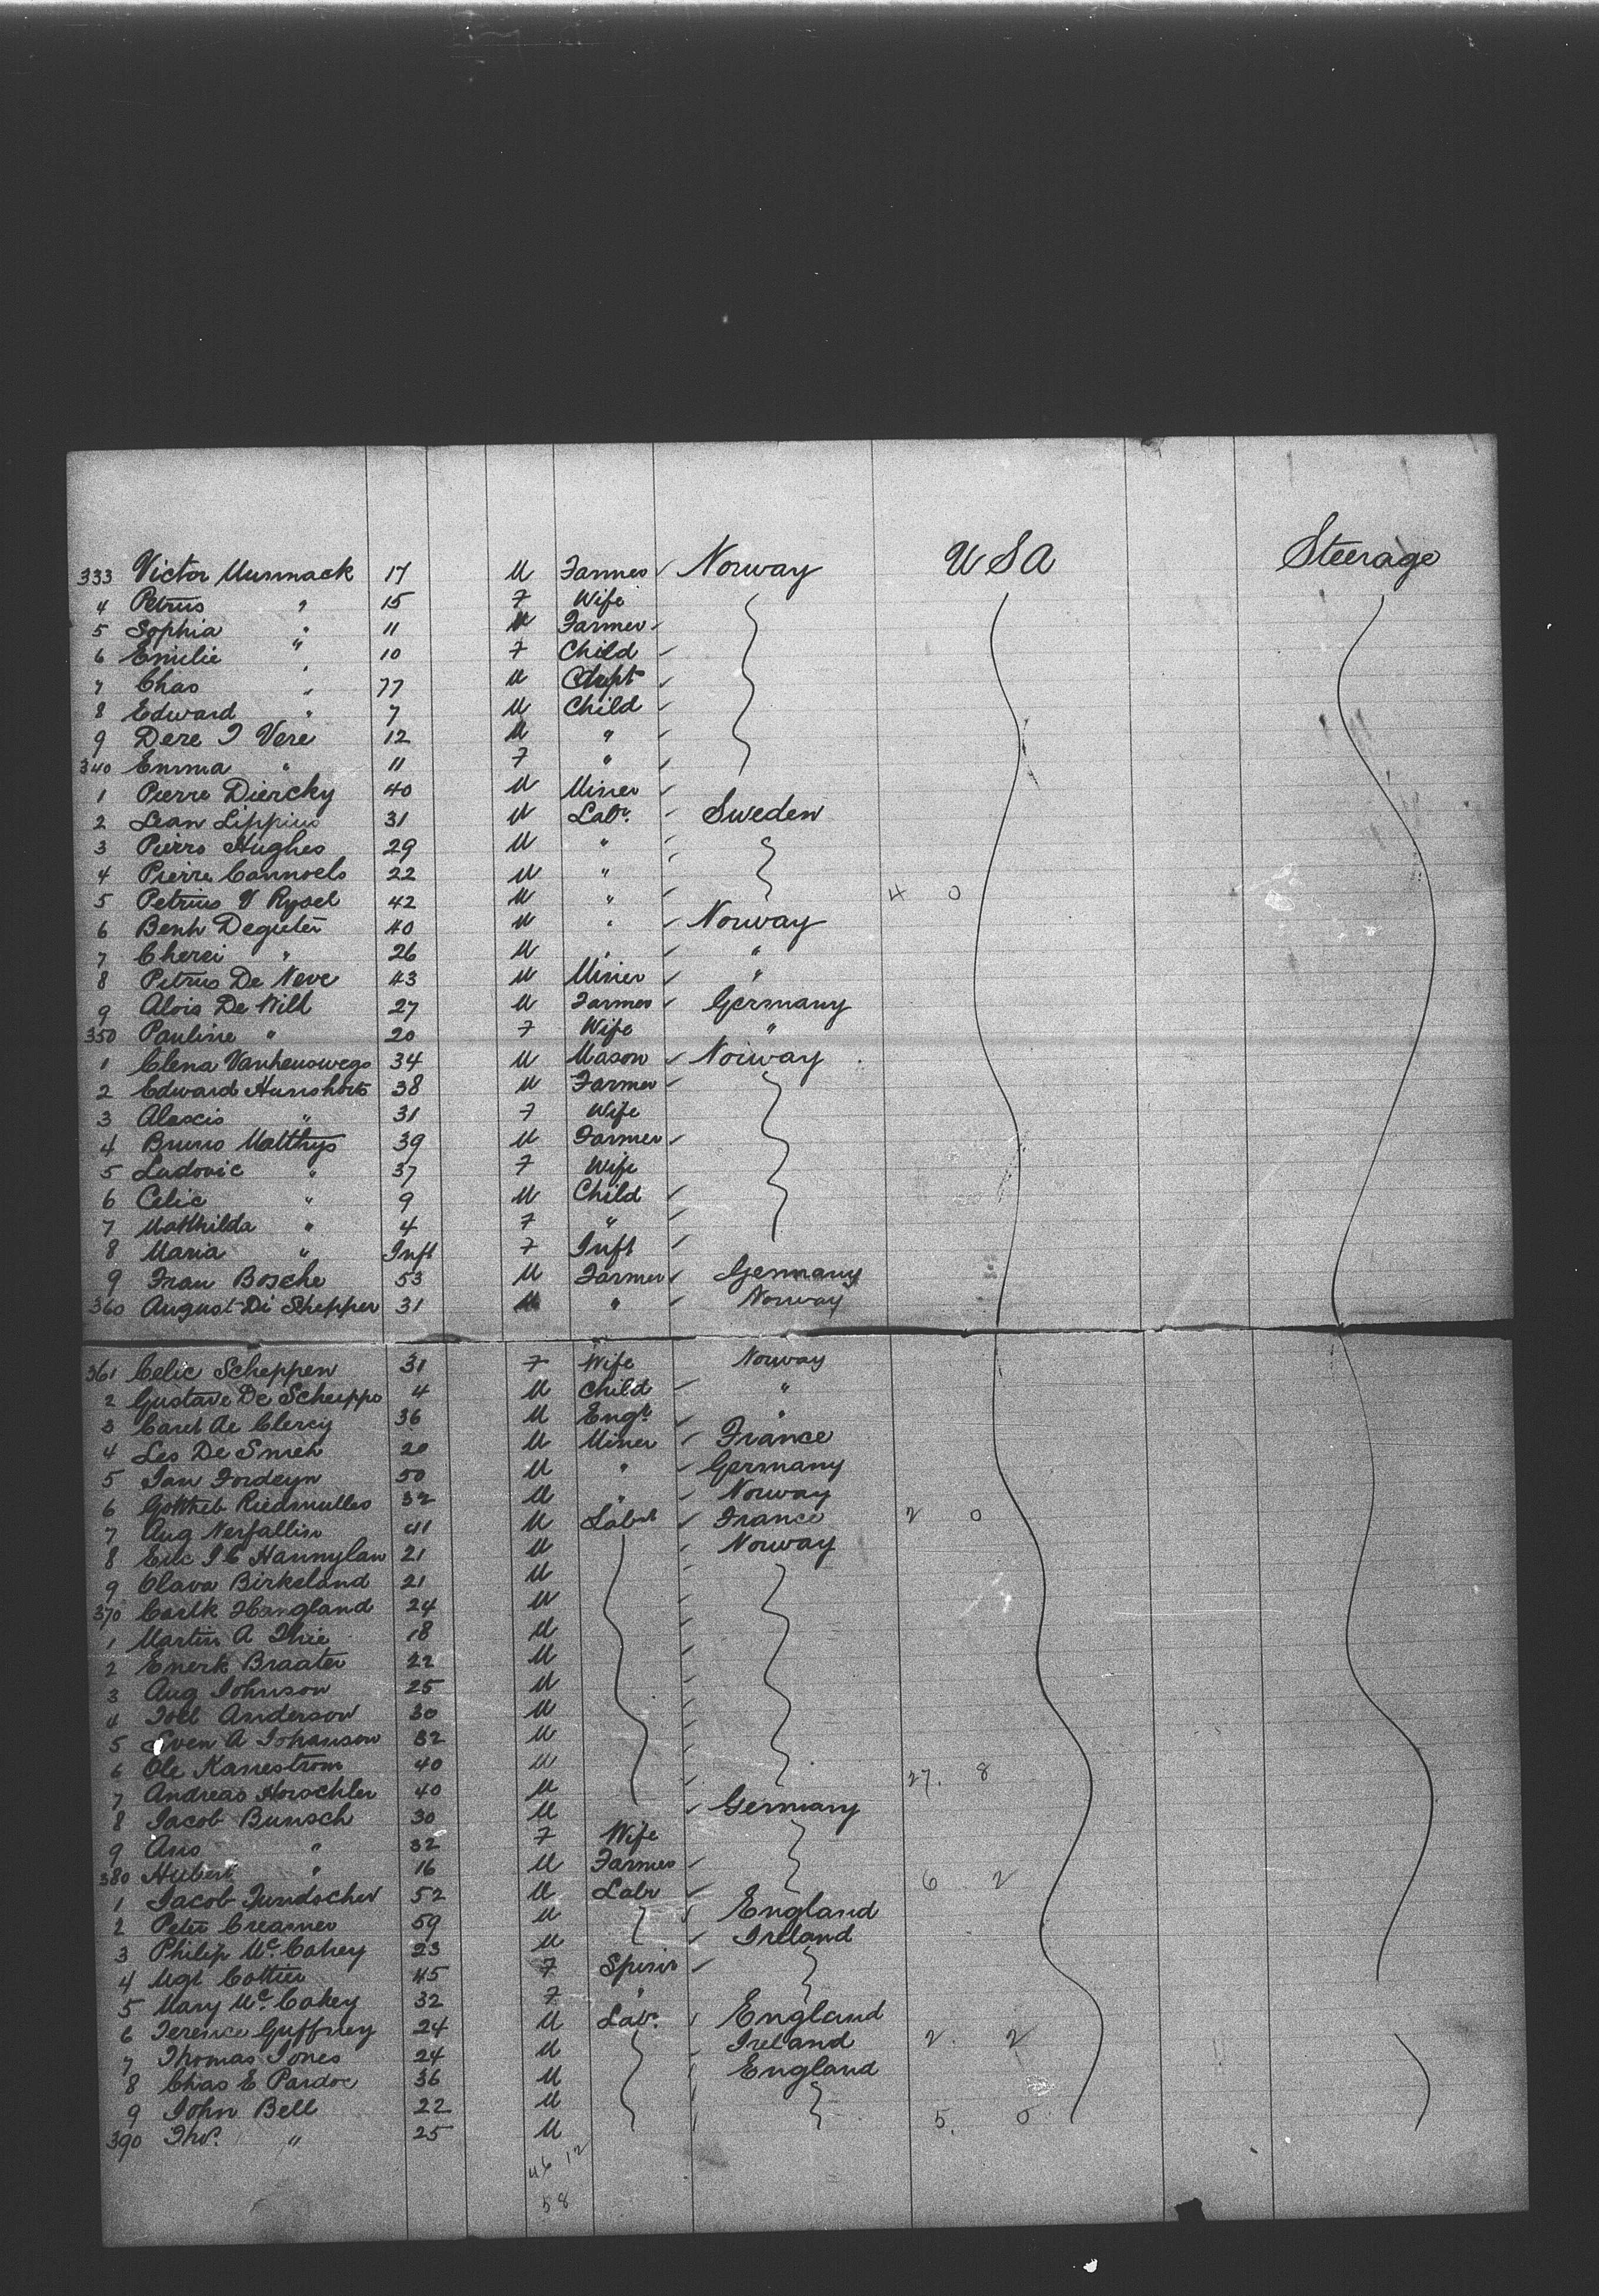 333 Victor Murmack 17 M Farmer ✓ Norway USA Steerage
4 Petrus " 15 F Wife
5 Sophia " 11 M Farmer
6 Emilie " 10 F Child
7 Chas " 77 M
8 Edward " 7 M Child
9 Dere I Vere 12 M "
340 Emma " 11 F "
1 Pierre Diercky 40 M Miner
2 Lean Lippius 31 M Labr. Sweden
3 Pierro Hughes 29 M "
4 Pierre Cannoels 22 M "
5 Petrius V Rysel 42 M " 4 0
6 Benh Degueter 40 M " Norway
7 Cherei " 26 M " "
8 Petrus De Neve 43 M Miner "
9 Alois De Will 27 M Farmer Germany
350 Pauline " 20 F Wife "
1 Clena Vanheuswego 34 M Mason Norway
2 Edward Hunshorts 38 M Farmer
3 Alexis " 31 F Wife
4 Bruno Matthys 39 M Farmer
5 Ludovic " 37 F Wife
6 Celic " 9 M Child
7 Mathilda " 4 F "
8 Maria " Inft F Inft
9 Frau Bosche 53 M Farmer Germany
360 August Di Shepper 31 M " Norway
361 Celic Scheppen 31 F Wife Norway
2 Gustave De Scheippo 4 M Child "
3 Carel De Clercy 36 M Engr "
4 Les De Smeh 20 M Miner France
5 Jan Fordeyn 50 M " Germany
6 Gottheb Riedmulles 32 M " Norway
7 Aug Nerfallin 41 M Labr France 2 0
8 Eric I C Hannylan 21 M Norway
9 Olava Birkeland 21 M
370 Carlk Hangland 24 M
1 Martin A Thie 18 M
2 Enerk Braater 22 M
3 Aug Johnson 25 M
4 Joel Anderson 30 M
5 Sven A Johanson 32 M
6 Ole Kanestrom 40 M
7 Andreas Horschler 40 M 27. 8
8 Jacob Bunsch 30 M Germany
9 Ans " 32 F Wife
380 Hubert " 16 M Farmer
1 Jacob Fundscher 52 M Labr 6 2
2 Peter Creamer 59 M England
3 Philip Mc Cahey 23 M Ireland
4 Mgt Cottier 45 F Spinr
5 Mary Mc Cahey 32 F "
6 Terence Guffney 24 M Labr. England
7 Thomas Jones 24 M Ireland 2. 2
8 Chas E Pardoe 36 M England
9 John Bell 22 M
390 Tho. " 25 M 5. 0
46 12
58